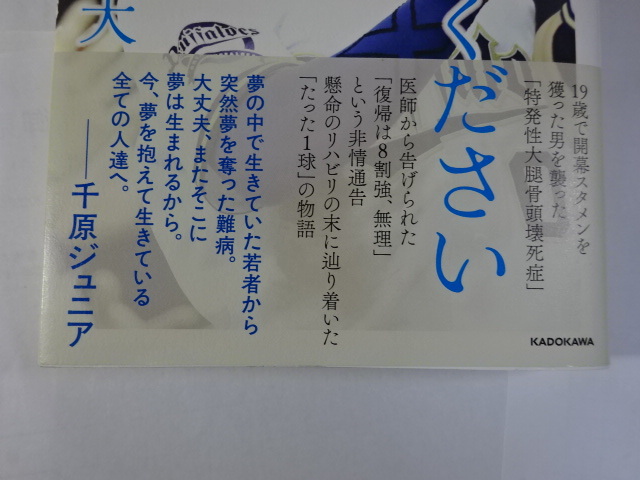 Buffaloes
大
ください
19歳で開幕スタメンを
獲った男を襲った
「特発性大腿骨頭壊死症」
医師から告げられた
「復帰は8割強、無理」
という非情通告
懸命のリハビリの末に辿り着いた
「たった1球」の物語
夢の中で生きていた若者から
突然夢を奪った難病。
大丈夫、またそこに
夢は生まれるから。
今、夢を抱えて生きている
全ての人達へ。
──千原ジュニア
KADOKAWA